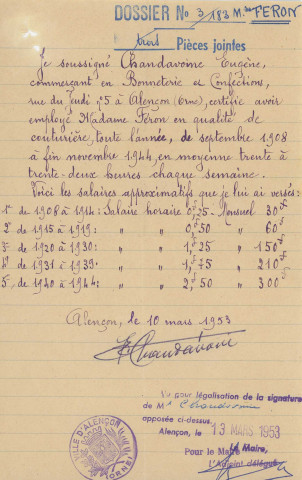 DOSSIER No 3/183 Mme FERON
trois Pièces jointes
Je soussigné Chandavoine Eugène,
commerçant en Bonneterie et Confections,
rue du Jeudi, 5 à Alençon (Orne), certifie avoir
employé Madame Féron en qualité de
couturière, toute l'année, de septembre 1908
à fin novembre 1944, en moyenne trente à
trente-deux heures chaque semaine.
Voici les salaires approximatifs que je lui ai versés:
1° de 1908 à 1914: Salaire horaire 0f25 - Mensuel 30f
2° de 1915 à 1919: " " 0f50 " 60f
3° de 1920 à 1930: " " 1f25 " 150f
4° de 1931 à 1939: " " 1f75 " 210f
5° de 1940 à 1944: " " 2f50 " 300f
Alençon, le 10 mars 1953
EChandavoine
Vu pour légalisation de la signature
de Mr Chandavoine
apposée ci-dessus.
Alençon, le 13 MARS 1953
Le Maire,
Pour le Maire
L'Adjoint délégué
VILLE D'ALENÇON
(ORNE)